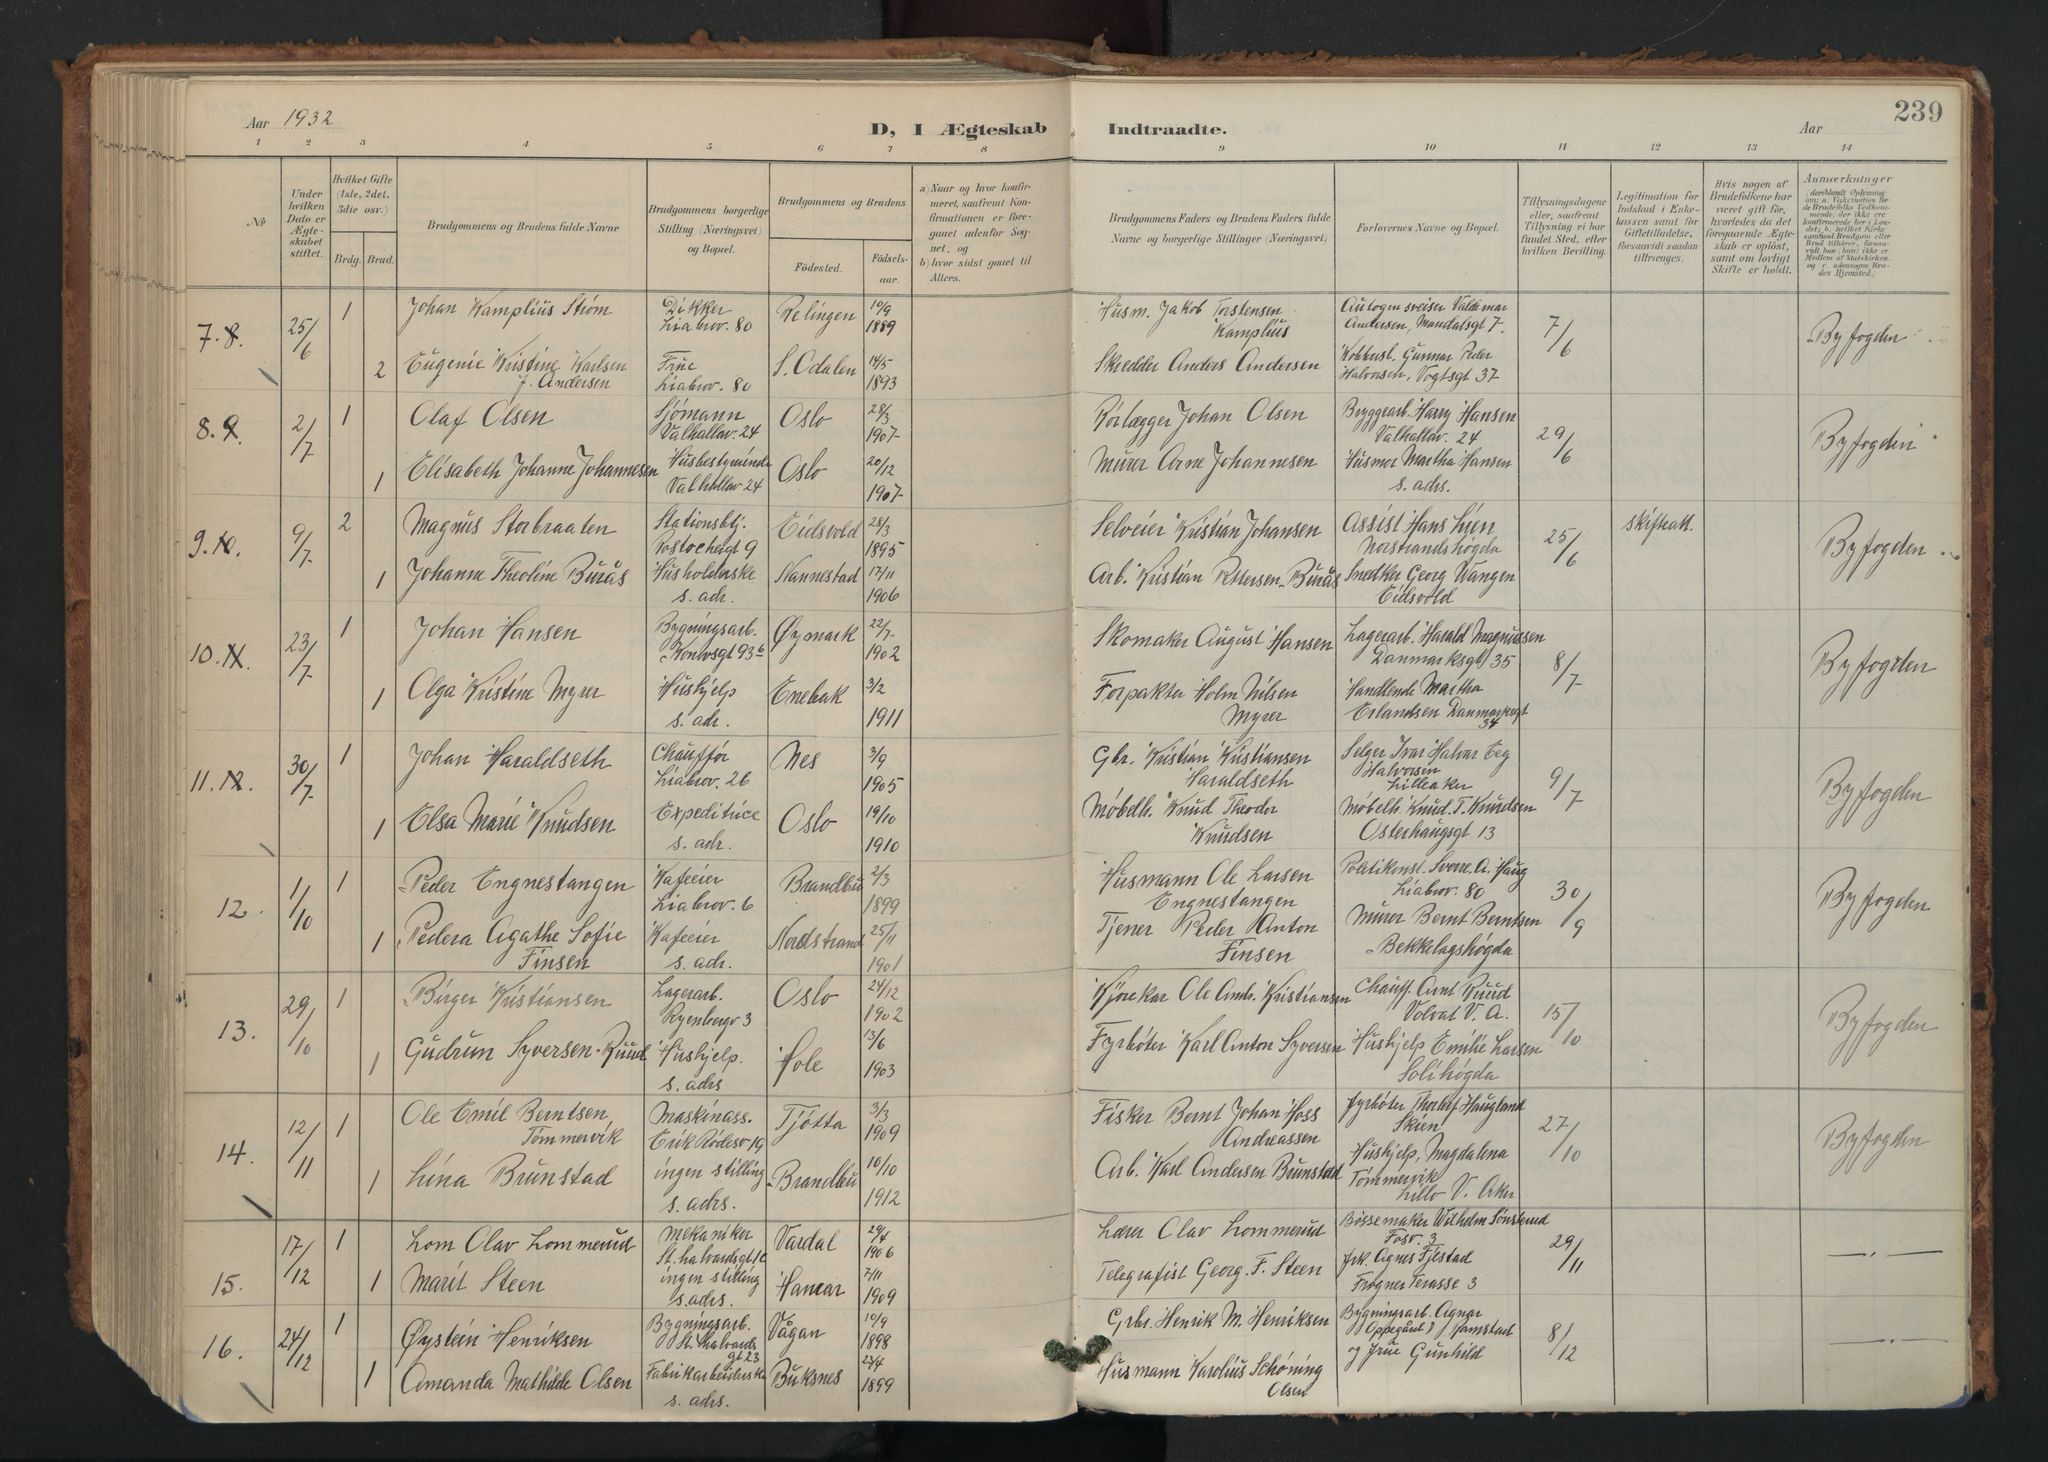 Aar 1932
D, I Ægteskab Indtraadte.
Aar
239
1 2 3 4 5 6 7 8 9 10 11 12 13 14
No
Under hvilken Dato er Ægteskabet stiftet.
Hvilket Gifte (1ste, 2det, 3die osv.)
Brdg. Brud.
Brudgommens og Brudens fulde Navne
Brudgommens borgerlige Stilling (Næringsvei) og Bopæl.
Brudgommens og Brudens
Födested. Födselsaar.
a) Naar og hvor konfirmeret, saafremt Konfirmationen er foregaaet udenfor Sognet, og
b) hvor sidst gaaet til Alters.
Brudgommens Faders og Brudens Faders fulde Navne og borgerlige Stillinger (Næringsvei)
Forlovernes Navne og Bopæl.
Tillysningsdagene eller, saafremt Tillysning ei har fundet Sted, efter hvilken Bevilling.
Legitimation for Indskud i Enkekassen samt for Giftetilladelse, forsaavidt saadan tiltrænges.
Hvis nogen af Brudefolkene har været gift før, hvorledes da det foregaaende Ægteskab er opløst, samt om lovligt Skifte er holdt.
Anmerkninger
7. 8. 25/6 1 Johan Kamplius Strøm Dikker Liabrov. 80 Relingen 10/9 1889 Husm. Jakob Torstensen Kamplius Autogensveiser Valdemar Andersen, Mandalsgt 7. 7/6 Byfogden
2 Eugenie Kristine Karlsen f. Andersen Frue Liabrov. 80 S. Odalen 14/5 1893 Skredder Anders Andersen Kobbersl. Gunnar Peder Halvorsen, Vogtsgt 37
8. 9. 2/7 1 Olaf Olsen Sjømann Valhallav. 24 Oslo 28/3 1907 Rørlægger Johan Olsen Bryggearb. Harry Hansen Valhallav. 24 29/6 Byfogden
1 Elisabeth Johanne Johannesen Husbestyrende Valhallav 24 Oslo 20/12 1907 Murer Arne Johannesen Husmor Martha Hansen s. adrs.
9. 10. 9/7 2 Magnus Storbraaten Stationsbtj. Eidsvold 28/3 1895 Selveier Kristian Johansen Assist Hans Lien Norstrandshøgda 25/6 skifteatt. Byfogden
1 Johanne Theoline Burås Husholderske s. adr. Nannestad 17/11 1906 Arb. Kristian Pettersen Burås Snedker Georg Wangen Eidsvold
10. 11. 23/7 1 Johan Hansen Bygningsarb. Konowsgt 93b Øymark 22/7 1902 Skomaker August Hansen Lagerarb. Harald Magnussen Danmarksgt 35 8/7 Byfogden
1 Olga Kristine Myrer Hushjelp s. adr. Enebak 3/2 1911 Forpakter Holm Nilsen Myrer Handlende Martha Erlandsen Danmarksgt 34
11. 12. 30/7 1 Johan Haraldseth Chauffør Liabrov. 26 Nes 3/9 1905 Gbr. Kristian Kristiansen Haraldseth Selger Ivar Halvar Eeg Halvorsen Lilleaker 9/7 Byfogden
1 Elsa Marie Knudsen Expeditrice s. adr. Oslo 19/10 1910 Møbelh. Knud Theodor Knudsen Møbelh. Knud. T. Knudsen Osterhausgt 13
12. 1/10 1 Peder Engnestangen Kafeeier Liabrov. 6 Brandbu 2/3 1899 Husmann Ole Larsen Engnestangen Politikonst. Sverre A. Haug Liabrov. 80 30/9 Byfogden
1 Pedera Agathe Sofie Finsen Kafeeier s. adr. Nordstrand 25/11 1901 Tjener Peder Anton Finsen Murer Bernt Berntsen Bekkelagshøgda
13. 29/10 1 Birger Kristiansen Lagerarb. Ryenbergv 3 Oslo 24/12 1902 Kjørekar Ole Andr. Kristiansen Chauff. Arnt Ruud Volvat V. A. 15/10 Byfogden
1 Gudrun Syversen-Ruud Hushjelp. s. adrs Hole 13/6 1903 Fyrbøter Karl Anton Syversen Hushjelp Emilie Larsen Solihøgda
14. 12/11 1 Ole Emil Berntsen Tømmervik Maskinass. Tjøtta 3/3 1909 Fisker Bernt Johan Hoss Andreassen Fyrbøter Thorleif Haugland Skien 27/10 Byfogden
1 Lina Brunstad ingen stilling s. adrs. Brandbu 10/10 1912 Arb. Karl Andersen Brunstad Hushjelp, Magdalena Tømmervik Lillo V. Aker
15. 17/12 1 Lom Olav Lommerud Mekaniker St. halvardsgt 1c Vardal 29/4 1906 Lærer Olav Lommerud Bøssemaker Wilhelm Sønsterud Fosv. 3 29/11 —.—
1 Marit Steen ingen stilling s. adrs. Hamar 7/11 1909 Telegrafist Georg. F. Steen frk. Agnes Fjestad Frogner Terasse 3
16. 24/12 1 Øystein Henriksen Bygningsarb. St. Halvardsgt 23 Vågan 10/9 1898 Grbr. Henrik M. Henriksen Bygningsarb. Agnar Oppegård og Frue Gunhild 8/12 —.—
1 Amanda Mathilde Olsen Fabrikarbeiderske s. adrs. Buksnes 23/4 1899 Husmann Karolius Schøning Olsen